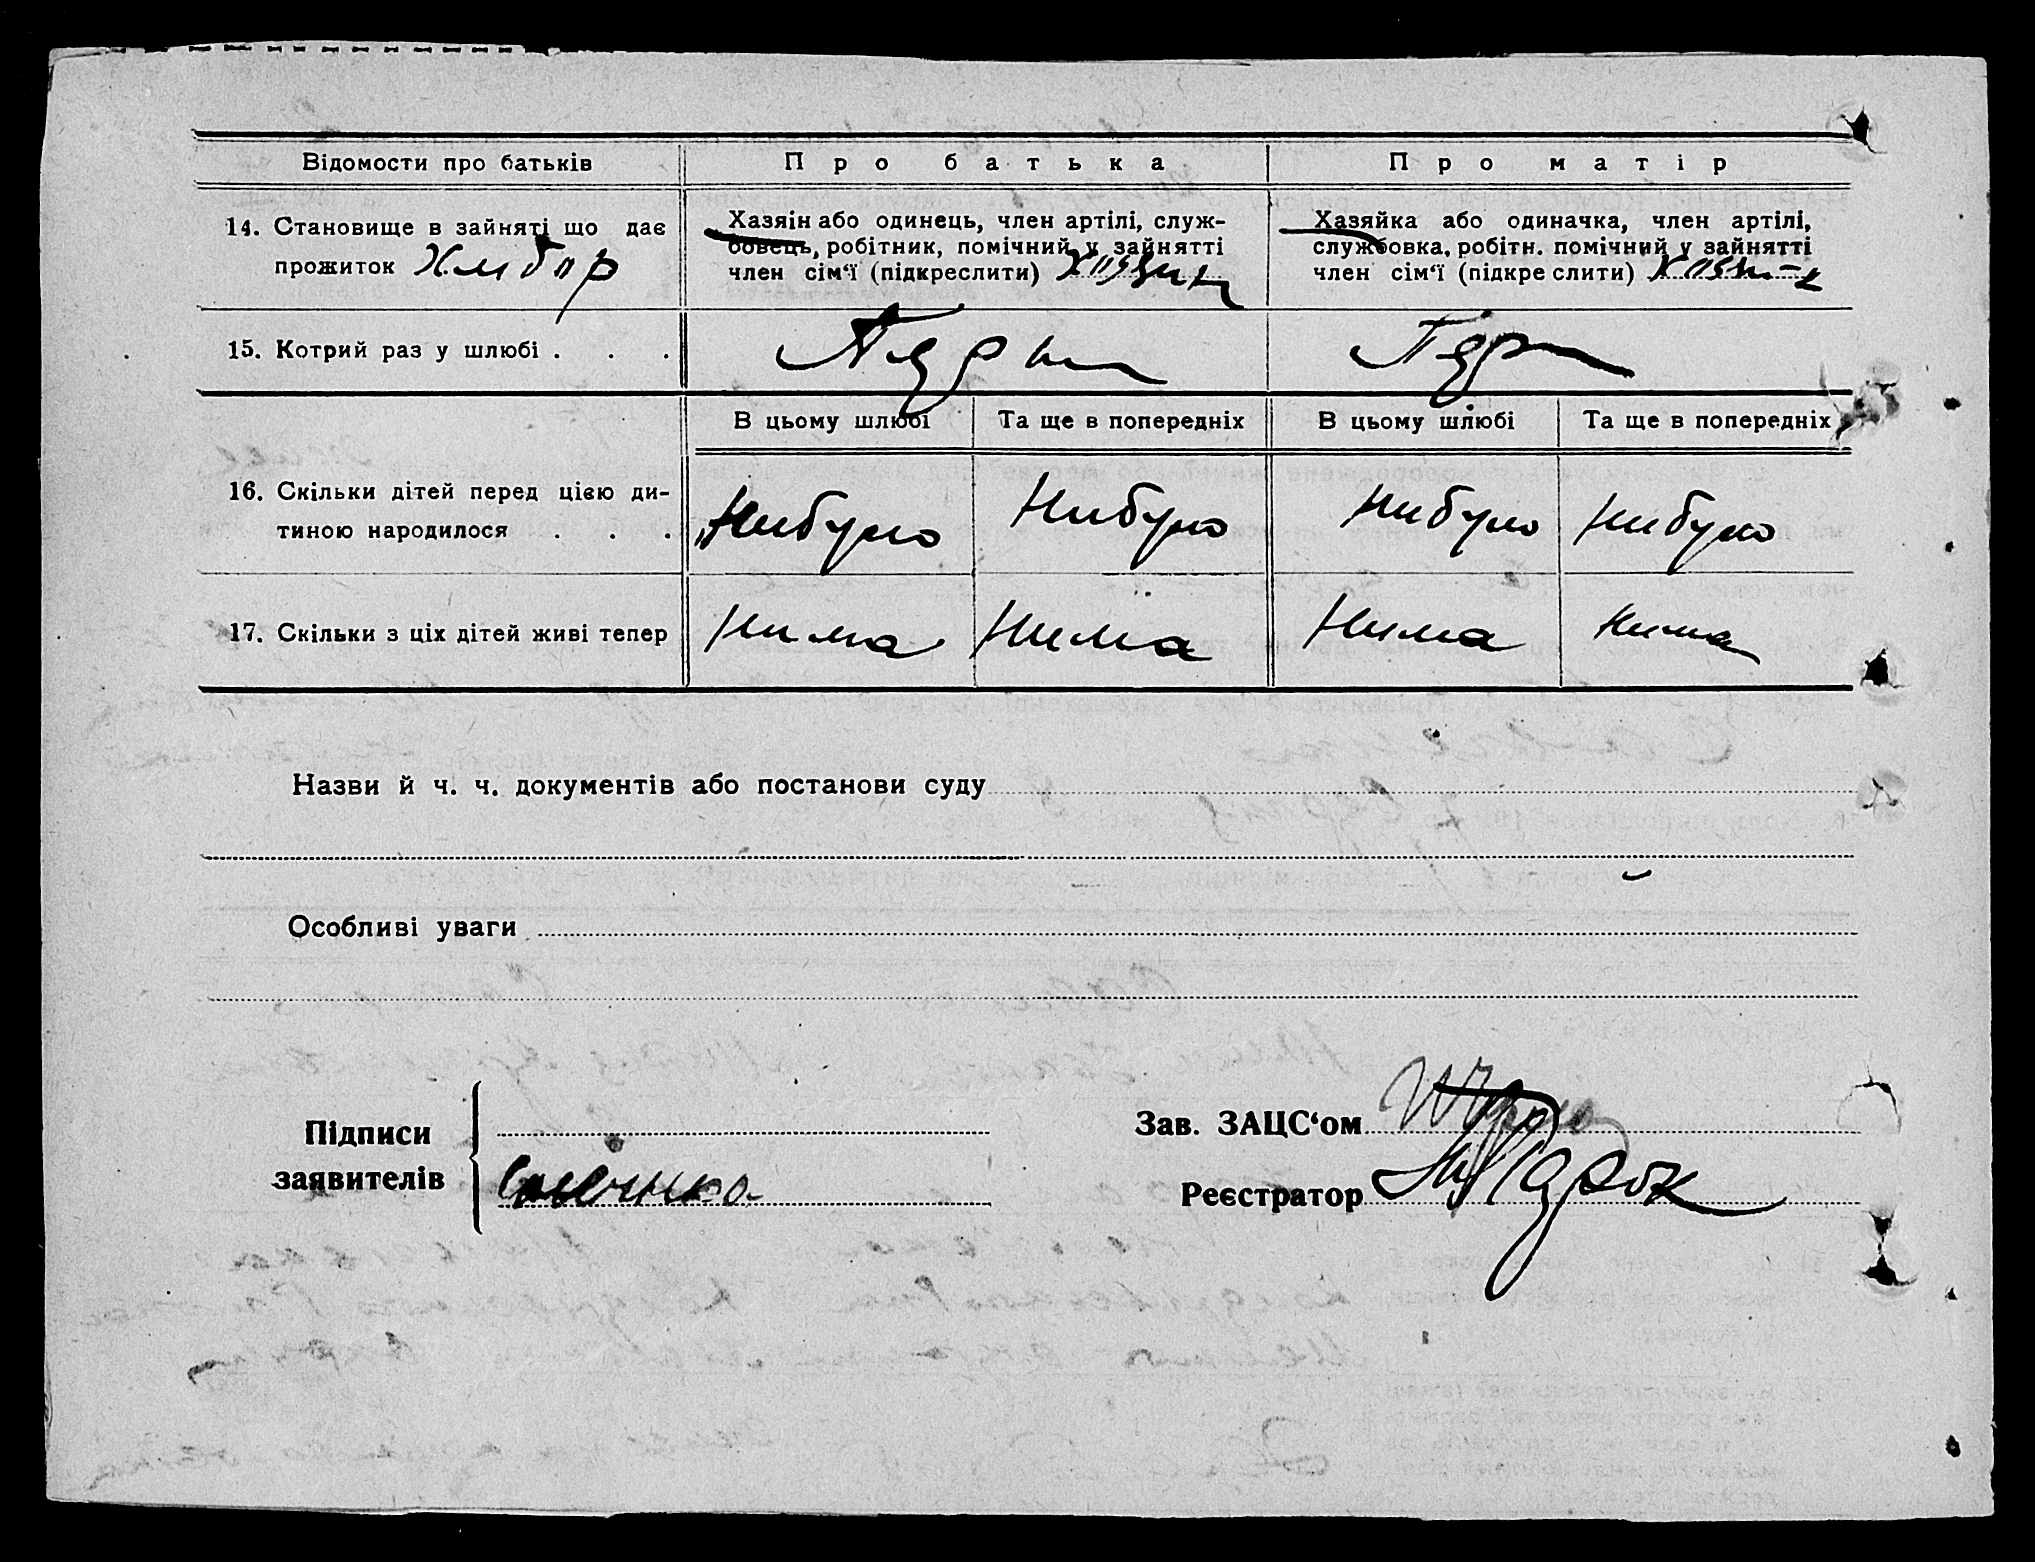 Відомости про батьків
Про батька
Про матір
14. Становище в зайняті що дає
прожиток Хлибор
Хазяін або одинець, член артілі, служ-
бовець, робітник, помічний у зайнятті
член сім'ї (підкреслити) Хазяин
Хазяйка або одиначка, член артілі,
службовка, робітн. помічний у зайнятті
член сім'ї (підкреслити)
15. Котрий раз у шлюбі . . .
Перш
Перш
В цьому шлюбі
Та ще в попередніх
В цьому шлюбі
Та ще в попередніх
16. Скільки дітей перед цією ди-
тиною народилося . . .
Нибуло
Нибуло
Нибуло
Нибуло
17. Скільки з ціх дітей живі тепер
Нима
Нима
Нима
Нима
Назви й ч. ч. документів або постанови суду
Особливі уваги
Підписи
заявителів
Зав. ЗАЦС'ом
Реєстратор